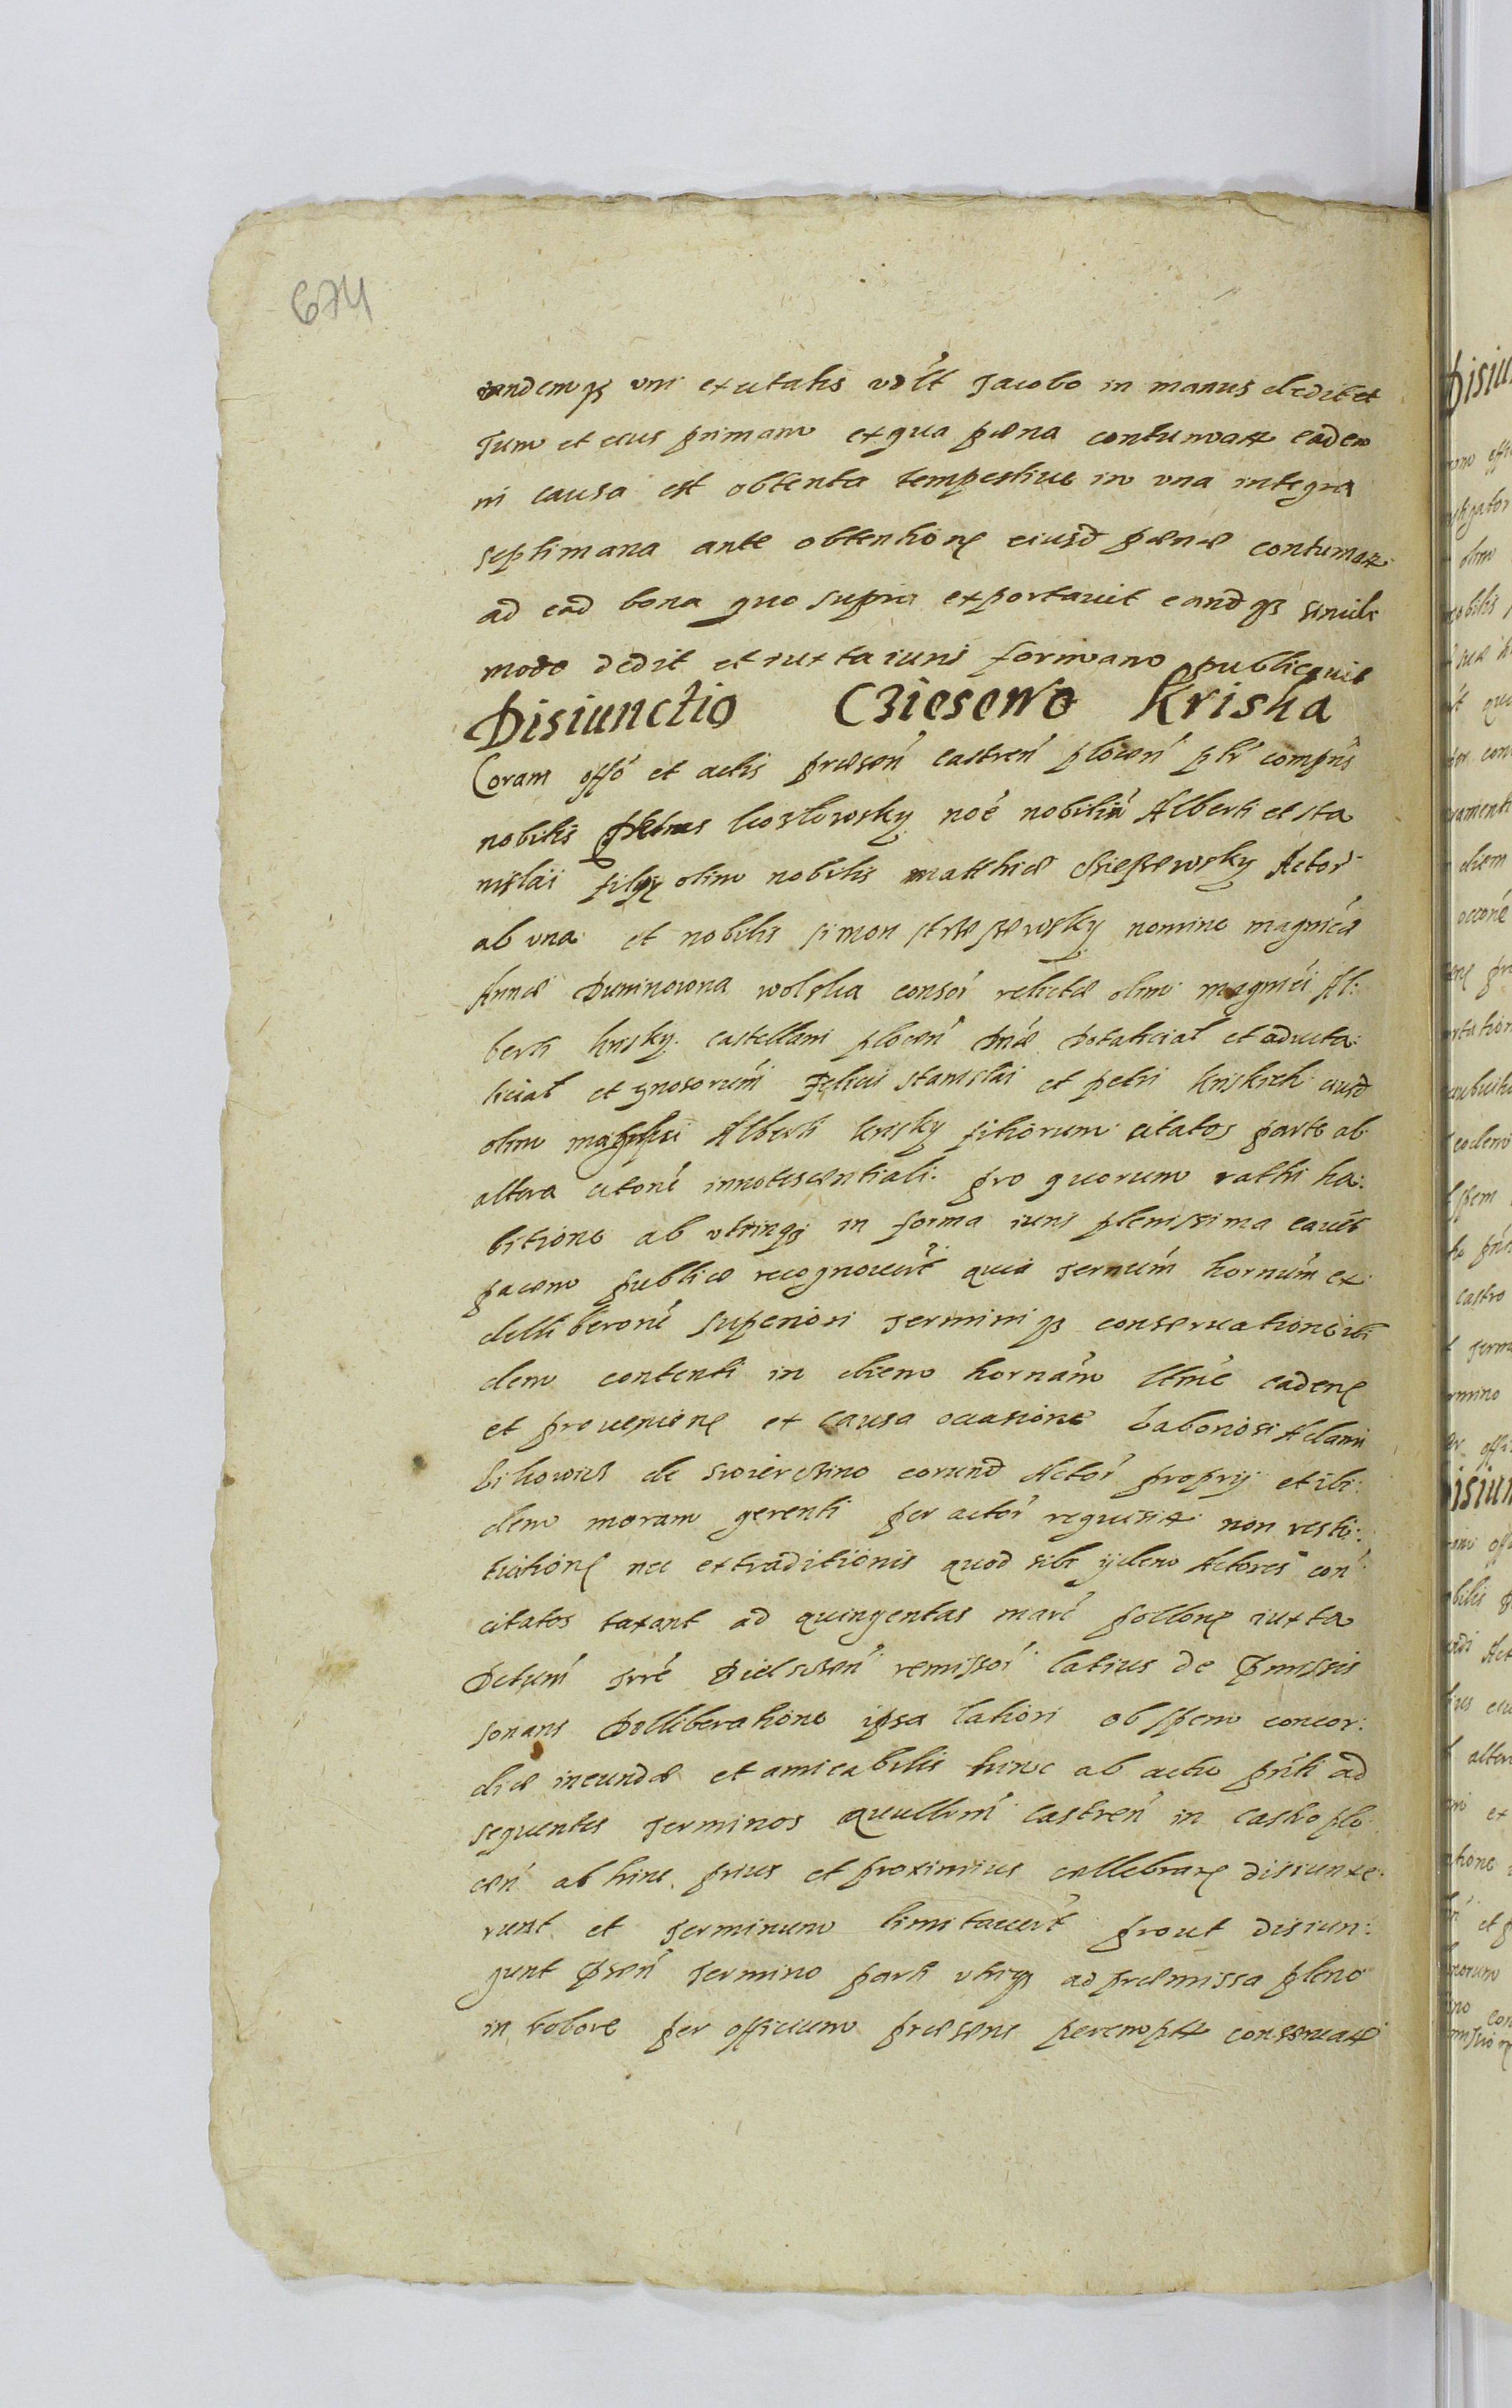 674
eandemqȝ uni ex citatis vdlt Jacobo in manus dedit et
Jum et eius primam ex qua pœna contumatꝝ eadem
in causa est obtenta tempestive in una integra
septimana ante obtentionē eiusd pœnæ contumatꝝ
ad ead bona quo supra exportavit eandqȝ simili
modo dedit et iuxta iuris formam publicavit
Disiunctio Cziesewo Kriska
Coram offo et actis præsen castren plocen plr compns
nobilis Petrus kozlowsky noe nobiliu Alberti et sta
nislai filior olim nobilis Matthiæ Actor
ab una et nobilis simon nomine magnicæ
Annæ Duninowna wolska consor relictæ olim magnici Al:
berti krisky castellani plocen Dnæ Dotalicial et aducta:
licial et gnosorum Felicis stanislai et petri kriskich eiusd
olim magnifici Alberti krisky filiorum citatos parte ab
altera citone innotescentiali pro quorum rathi ha:
bitione ab utrinqȝ in forma iuris plenissima cavet
pacem publicæ recognoverut quia Jernum hornum ex
delliberone superiori Jermini qȝ conservatione ibi
dem contenti in diem hornam ltime cadenē
et provenienē ex causa occasione Laboriosi Adami
de swierczino eorund Actor proprij et ibi:
dem moram gerenti per actor requisitꝝ non resti:
tutionē nec extraditionis quod sibi ijdem Actores con
citatos taxant ad quingentas marc pollonē iuxta
Dctum Jrre Bielscen remissor latius de pmissis
sonans Delliberatione ipsa latiori ob spem concor:
diæ ineundæ et amicabilis hinc ab actu pnti ad
sequentes Jerminos quullum castren in castro plo
cen ab hinc prius et proximius cellebranē disiunxe:
runt et Jerminum limitaverut prout disiun:
gunt psen Jermino parti utriqȝ ad præmissa pleno
in robore per officium præsens peremptꝝ conservatꝝ